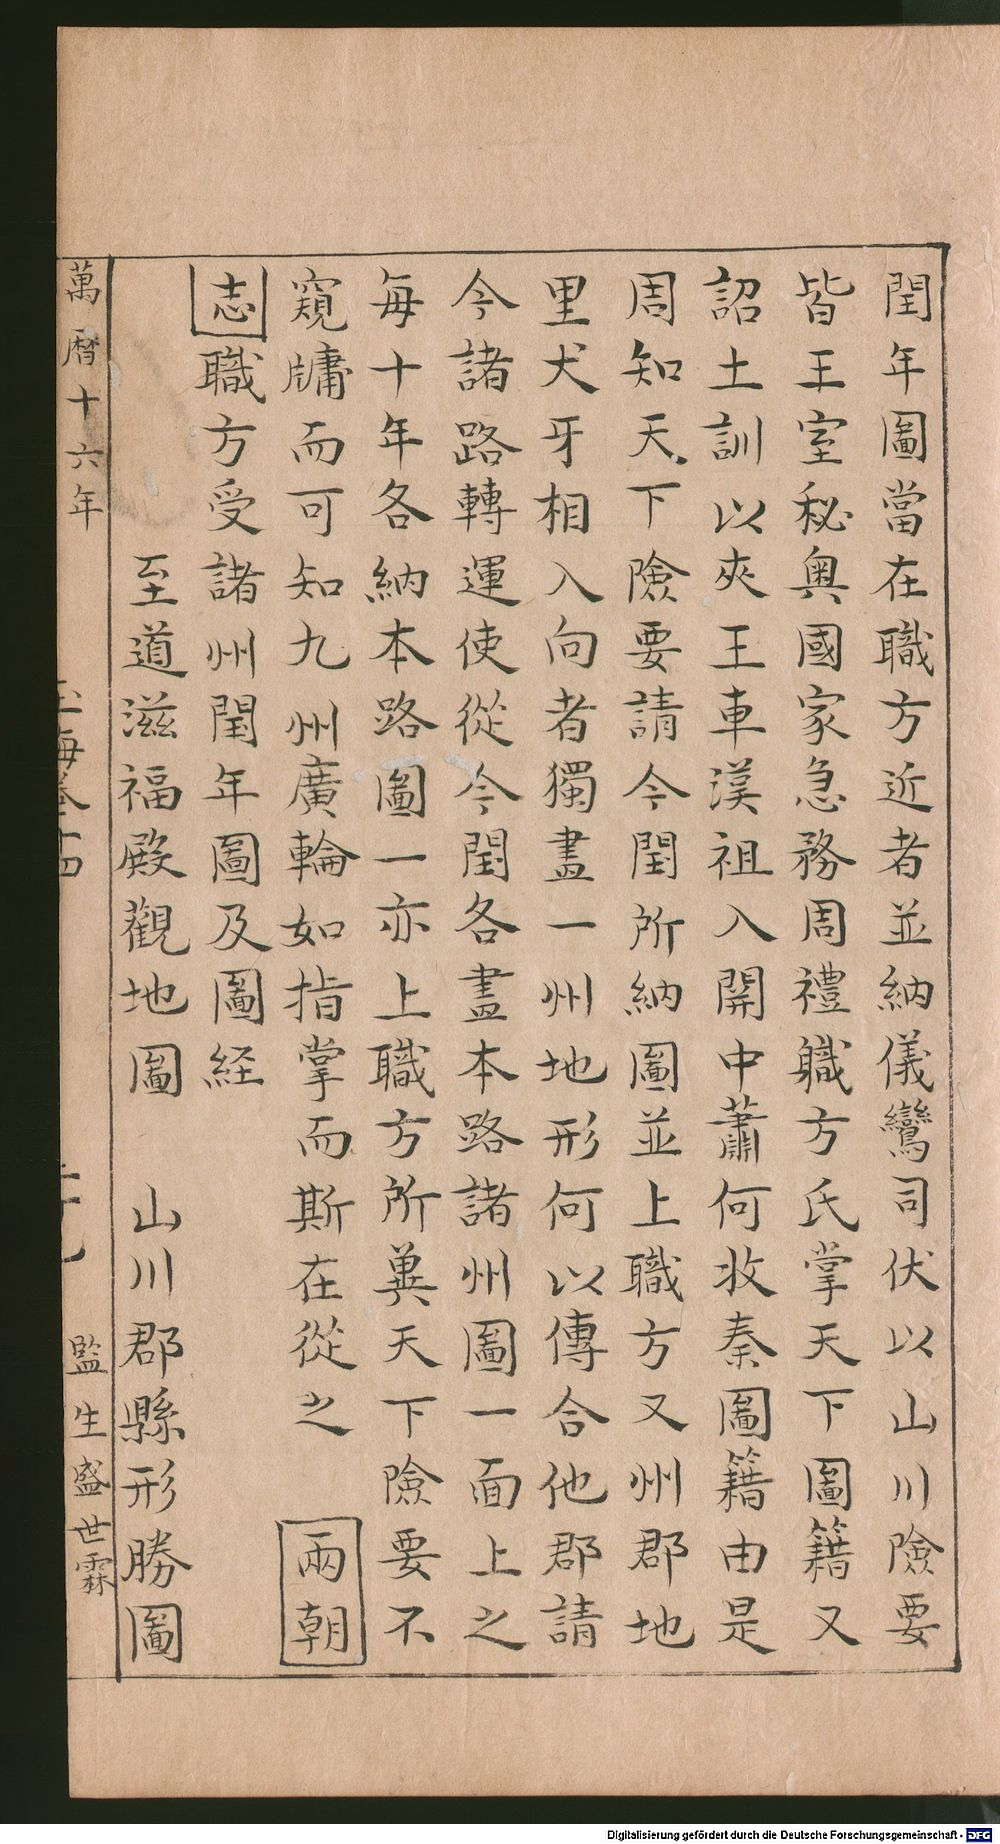 閏年圖當在職方近者並納儀鸞司伏以山川險要
皆王室秘奧國家急務周禮職方氏掌天下圖籍又
詔土訓以夾王車漢祖入關中蕭何收秦圖籍由是
周知天下險要請今閏所納圖並上職方又州郡地
里犬牙相入向者獨畫一州地形何以傳合他郡請
今諸路轉運使從今閏各畫本路諸州圖一面上之
每十年各納本路圖一亦上職方所冀天下險要不
窺牖而可知九州廣輪如指掌而斯在從之 兩朝
志職方受諸州閏年圖及圖経
至道滋福殿觀地圖 山川郡縣形勝圖
萬曆十六年
玉海卷十四
監生盛世霖
Digitalisierung gefördert durch die Deutsche Forschungsgemeinschaft - DFG